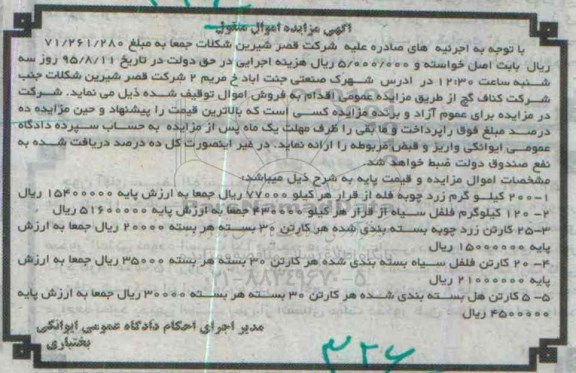 آگهی مزایده اموال منقول
با توجه به اجرئیه های صادره علیه شرکت قصر شیرین شکلات جمعا به مبلغ ۷۱/۲۶۱/۲۸۰
ریال بابت اصل خواسته و ۵/۰۰۰/۰۰۰ ریال هزینه اجرایی در حق دولت در تاریخ ۹۵/۸/۱۱ روز سه
شنبه ساعت ۱۲:۳۰ در ادرس شهرک صنعتی جنت اباد خ مریم ۲ شرکت قصر شیرین شکلات جنب
شرکت کناف گچ از طریق مزایده عمومی اقدام به فروش اموال توقیف شده ذیل می نماید. شرکت
در مزایده برای عموم آزاد و برنده مزایده کسی است که بالاترین قیمت را پیشنهاد و حین مزایده ده
درصد مبلغ فوق راپرداخت و ما بقی را ظرف مهلت یک ماه پس از مزایده به حساب سپرده دادگاه
عمومی ایوانکی واریز و قبض مربوطه را ارائه نماید. در غیر اینصورت کل ده درصد دریافت شده به
نفع صندوق دولت ضبط خواهد شد.
مشخصات اموال مزایده و قیمت پایه به شرح ذیل میباشد:
۱-۲۰۰ کیلو گرم زرد چوبه فله از قرار هر کیلو ۷۷۰۰۰ ریال جمعا به ارزش پایه ۱۵۴۰۰۰۰۰ ریال
۲- ۱۲۰ کیلوگرم فلفل سیاه از قرار هر کیلو ۴۳۰۰۰۰ جمعا به ارزش پایه ۵۱۶۰۰۰۰۰ ریال
۳-۲۵ کارتن زرد چوبه بسته بندی شده هر کارتن ۳۰ بسته هر بسته ۲۰۰۰۰ ریال جمعا به ارزش
پایه ۱۵۰۰۰۰۰۰ ریال
۴- ۲۰ کارتن فلفل سیاه بسته بندی شده هر کارتن ۳۰ بسته هر بسته ۳۵۰۰۰ ریال جمعا به ارزش
پایه ۲۱۰۰۰۰۰۰ ریال
۵- ۵ کارتن هل بسته بندی شده هر کارتن ۳۰ بسته هر بسته ۳۰۰۰۰ ریال جمعا به ارزش پایه
۴۵۰۰۰۰۰ ریال
مدیر اجرای احکام دادگاه عمومی ایوانکی
بختیاری
۳۲۶